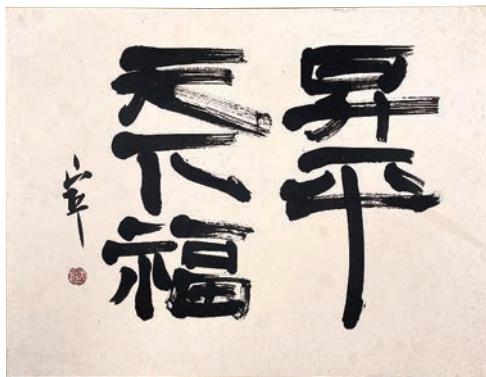 昇平
天下福